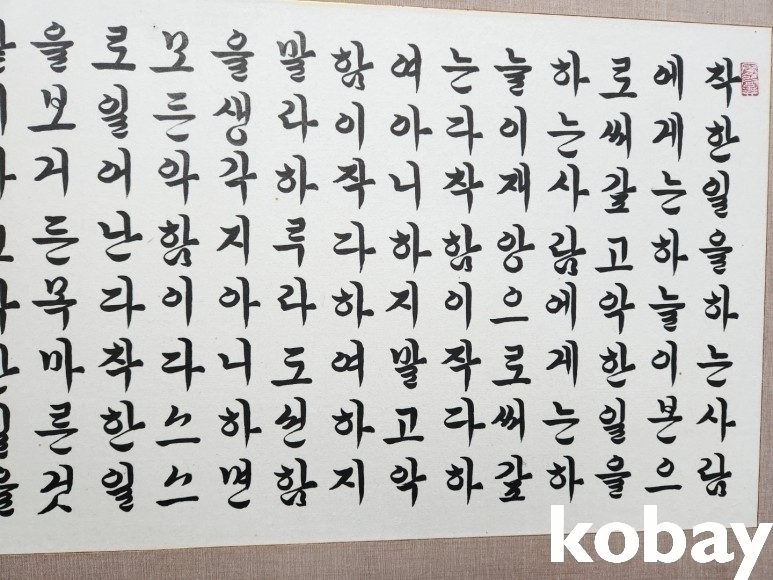 착한일을하는사람
에게는하늘이본으
로써갚고악한일을
하는사람에게는하
늘이재앙으로써갚
는다착함이작다하
여아니하지말고악
함이작다하여하지
말라하루라도선함
을생각지아니하면
모든악함이다스스
로일어난다착한일
을보거든목마른것
kobay